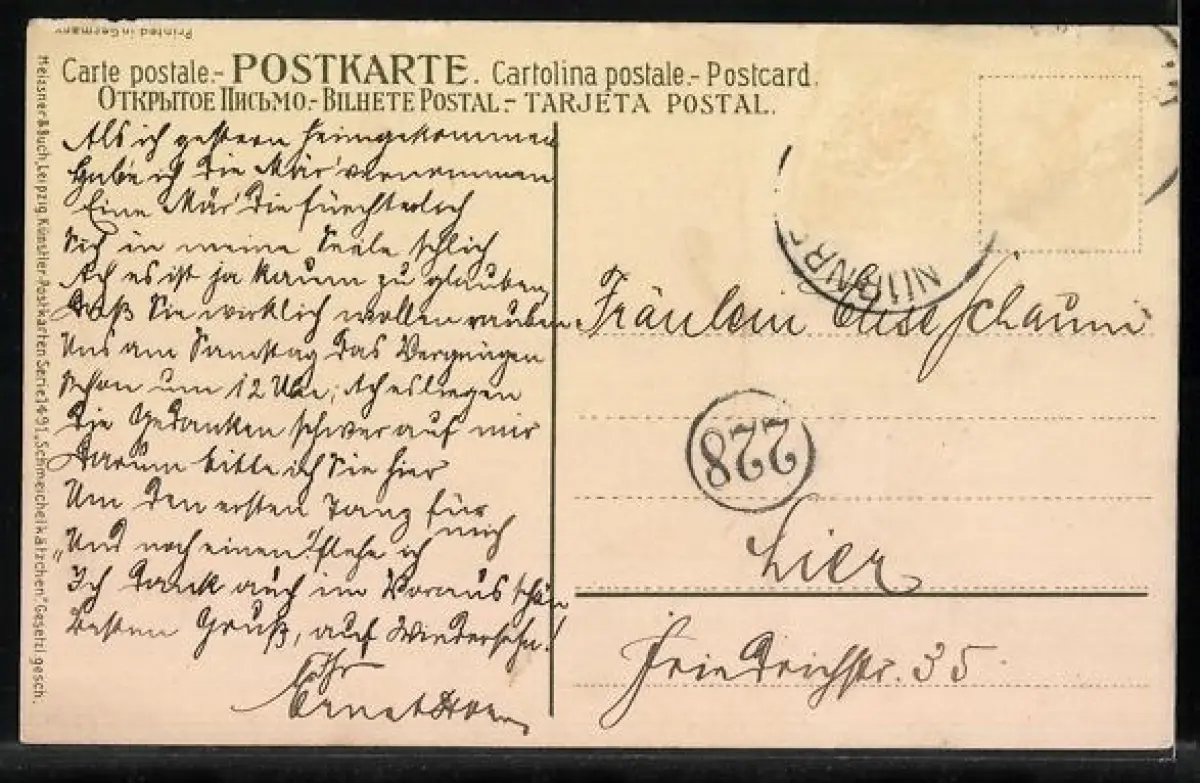 Printed in Germany
Carte postale.- POSTKARTE. Cartolina postale.- Postcard.
ОТКРЫТОЕ ПИСЬМО.- BILHETE POSTAL.- TARJETA POSTAL.
Meissner & Buch, Leipzig Künstler-Postkarten Serie 1491 „Schmeichelkätzchen." Gesetzl gesch.
Als ich gestern heimgekommen
Hab' ich die Mär' vernommen
Eine Mär' die fürchterlich
Sich in meine Seele schlich
Ach es ist ja kaum zu glauben,
Daß Sie wirklich wollen rauben
Uns am Samstag das Vergnügen
Schon um 12 Uhr; Ach es liegen
Die Gedanken schwer auf mir
Darum bitte ich Sie hier
Um den ersten Tanz für mich
"Und noch einen" flehe ich
Ich dank auch im Voraus schön
Besten Gruß, auf Wiedersehn!
Ihr
Fräulein Else
228
Hier
Friedrichstr. 35